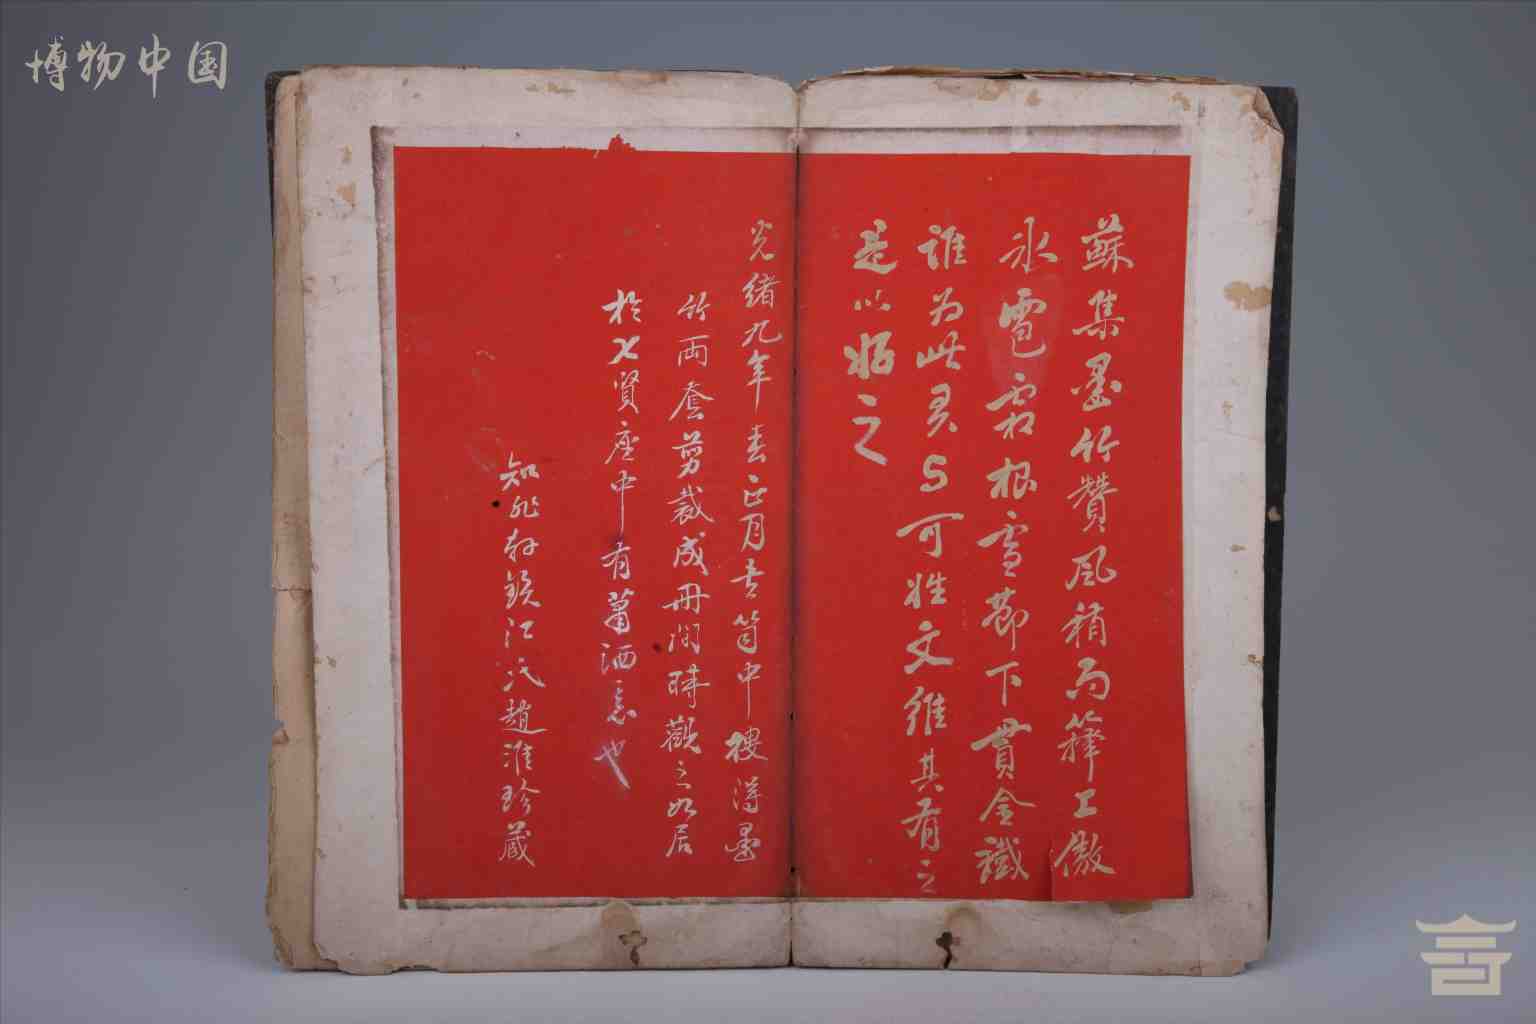 博物中国
蘇集墨竹贊風稍雨籜上傲
冰雹霜根雪節下貫金鐵
誰为此君与可姓文維其有之
是以好之
光緒九年春正月筒中摟得墨
竹兩套剪裁成冊閒時觀之如居
於七賢座中有蕭洒意也
知非軒鏡江氏趙淮珍藏